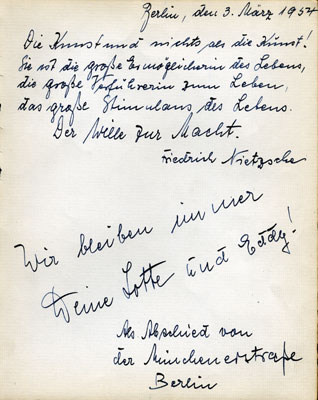 Berlin, den 3. März 1954
Die Kunst und nichts als die Kunst!
Sie ist die große Ermöglicherin des Lebens,
die große Verführerin zum Leben,
das große Stimulans des Lebens.
Der Wille zur Macht.
Friedrich Nietzsche
Wir bleiben immer
Deine Lotte und Eddy!
Als Abschied von
der Münchenerstraße
Berlin